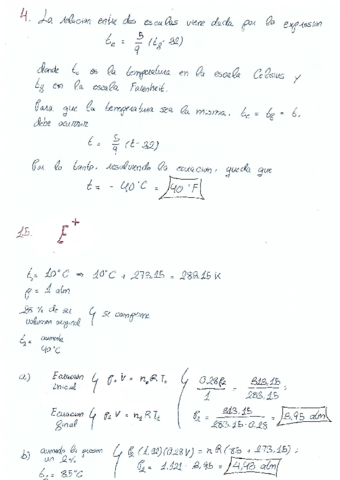 4. La relacion entre dos escalas viene dada por la expresion
tc = 5/9 (tF - 32)
donde tc es la temperatura en la escala Celsius y
tF en la escala Farenheit.
Para que la temperatura sea la misma, tc = tF = t,
debe ocurrir
t = 5/9 (t - 32)
Por lo tanto, resolviendo la ecuacion, queda que
t = - 40°C = - 40°F
15. E+
t1 = 10°C ⇒ 10°C + 273.15 = 283.15 K
P = 1 atm
28% de su
volumen original } se comprime
t2 = aumenta
40°C
a) Ecuacion
inicial } P1 V = n1 R T1 { 0.28 P2 / 1 = 313.15 / 283.15 ;
Ecuacion
final } P2 V = n2 R T2 P2 = 313.15 / 283.15 · 0.28 = 3.95 atm
b) aumenta la presion
un 2%
t3 = 85°C